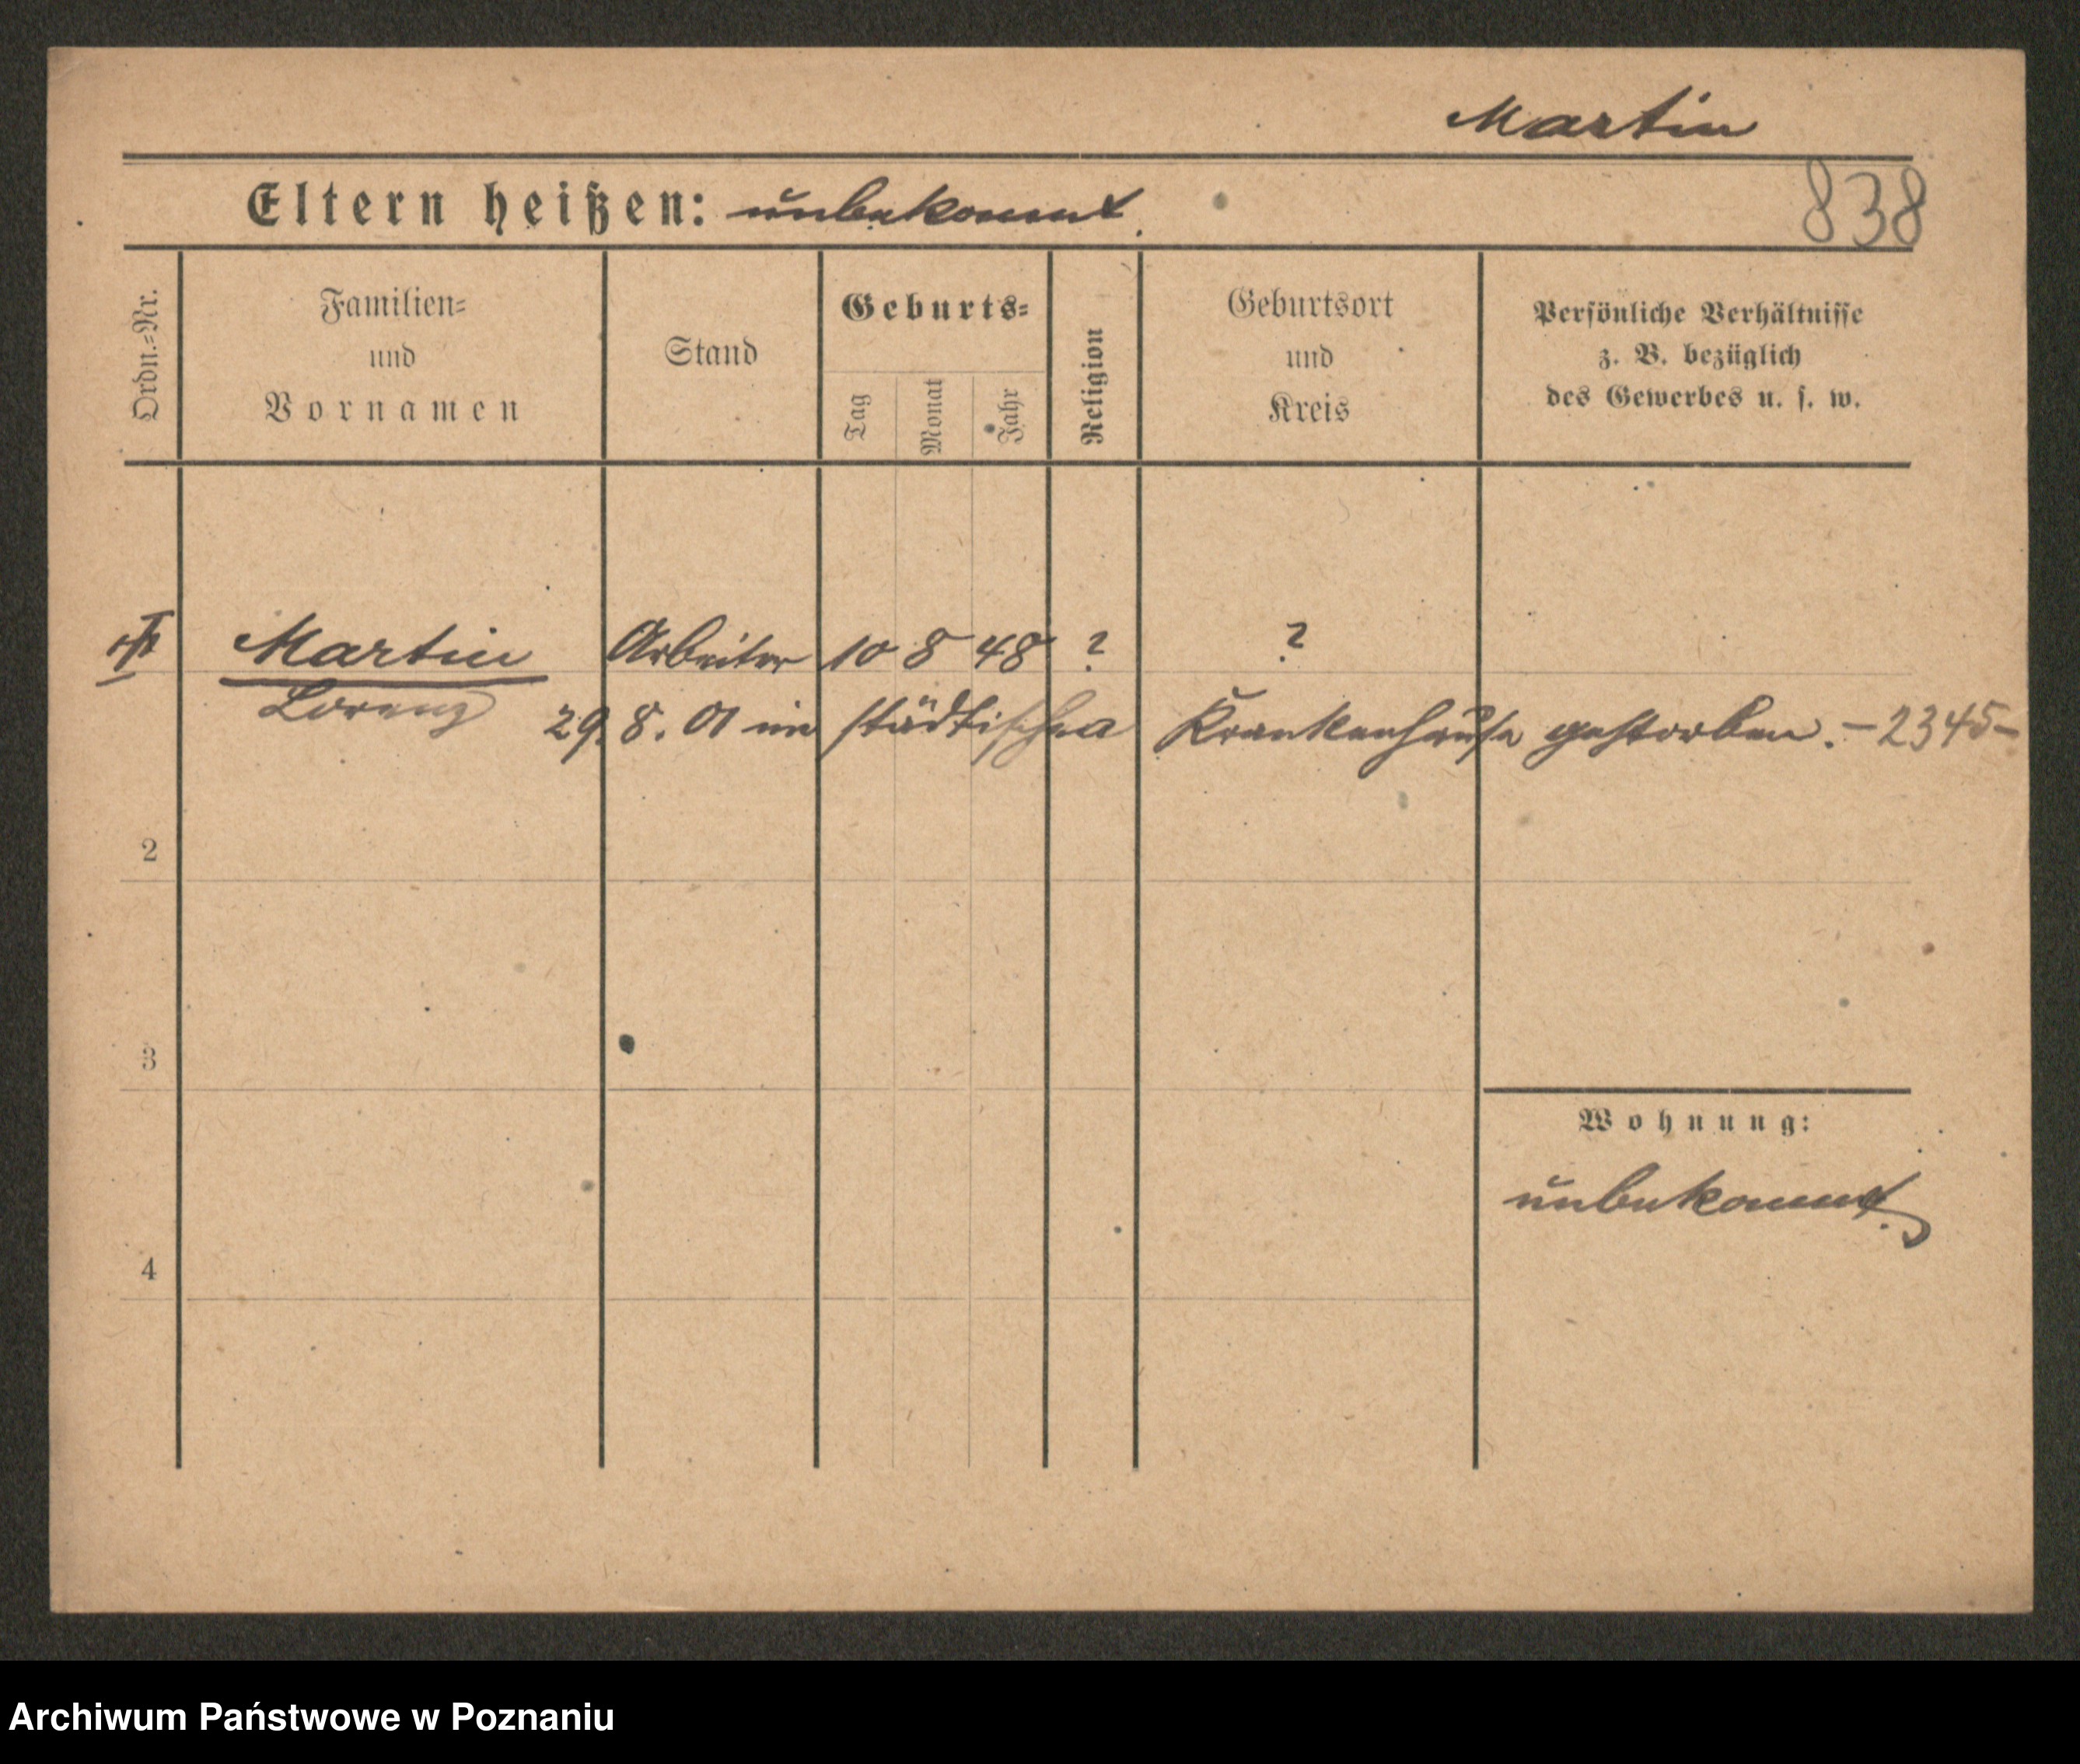 Martin
838
Eltern heißen: unbekannt.
Ordn.-Nr.
Familien-
und
Vornamen
Stand
Geburts-
Tag
Monat
Jahr
Religion
Geburtsort
und
Kreis
Persönliche Verhältnisse
z. B. bezüglich
des Gewerbes u. s. w.
Martin Arbeiter 10 8 48 ? ?
Lorenz 29.8.01 im städtischen Krankenhause gestorben. - 2345 -
2
3
Wohnung:
unbekannt.
4
Archiwum Państwowe w Poznaniu